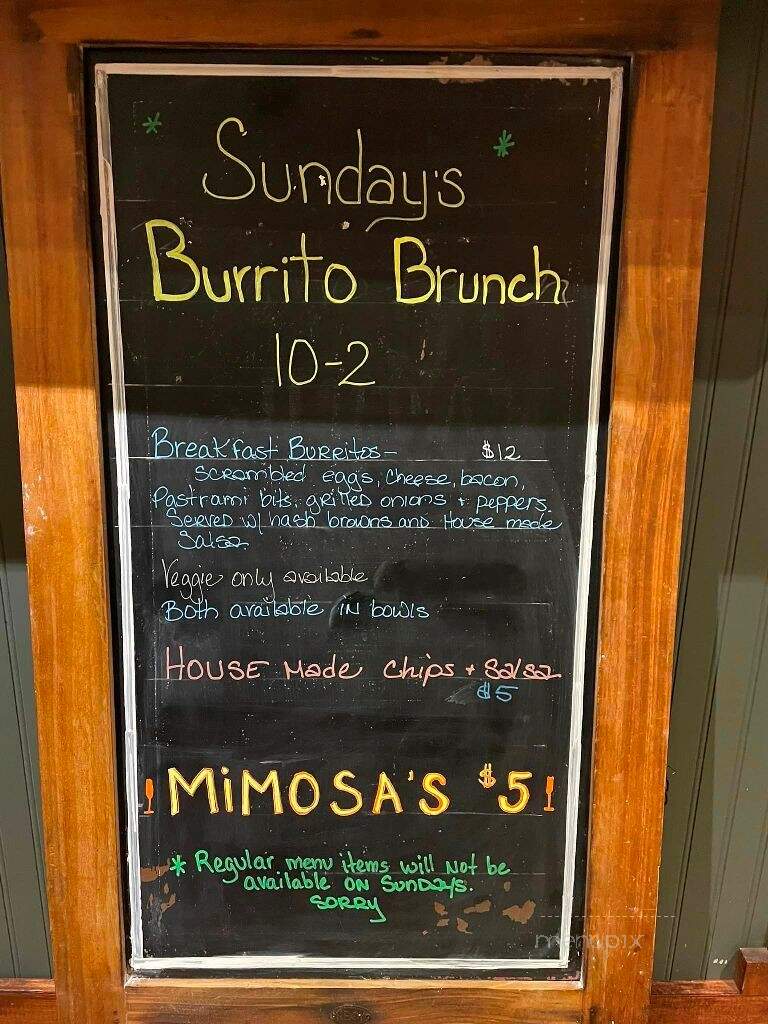 * Sunday's *
Burrito Brunch
10-2
Breakfast Burritos- $12
scrambled eggs, cheese, bacon,
Pastrami bits, grilled onions + peppers.
Served w/ hash browns and House made
Salsa
Veggie only available
Both available IN bowls
HOUSE Made Chips + Salsa
$5
MiMOSA'S $5
* Regular menu items will Not be
available ON SUNDAYS.
SORRY
menupix